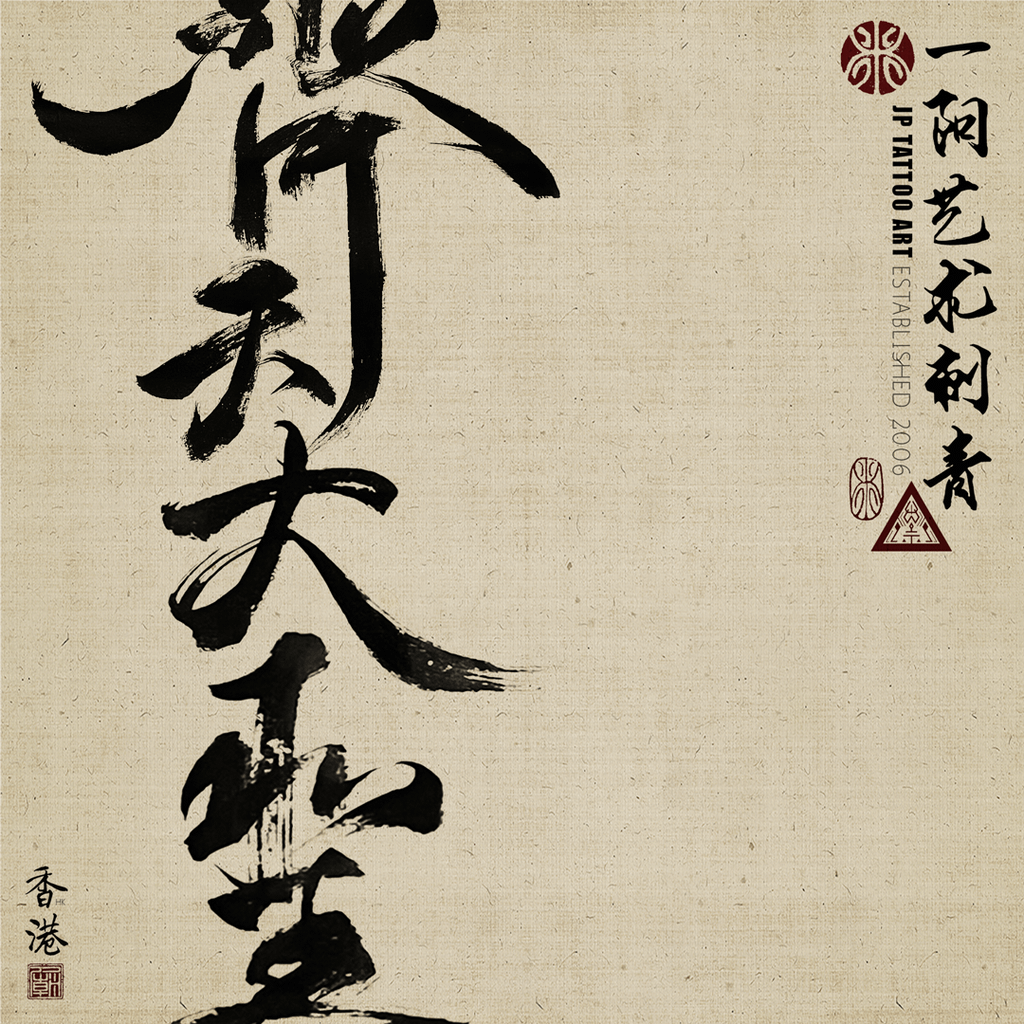 齊天大聖
艺术刺青
JP TATTOO ART ESTABLISHED 2006
香港
HK